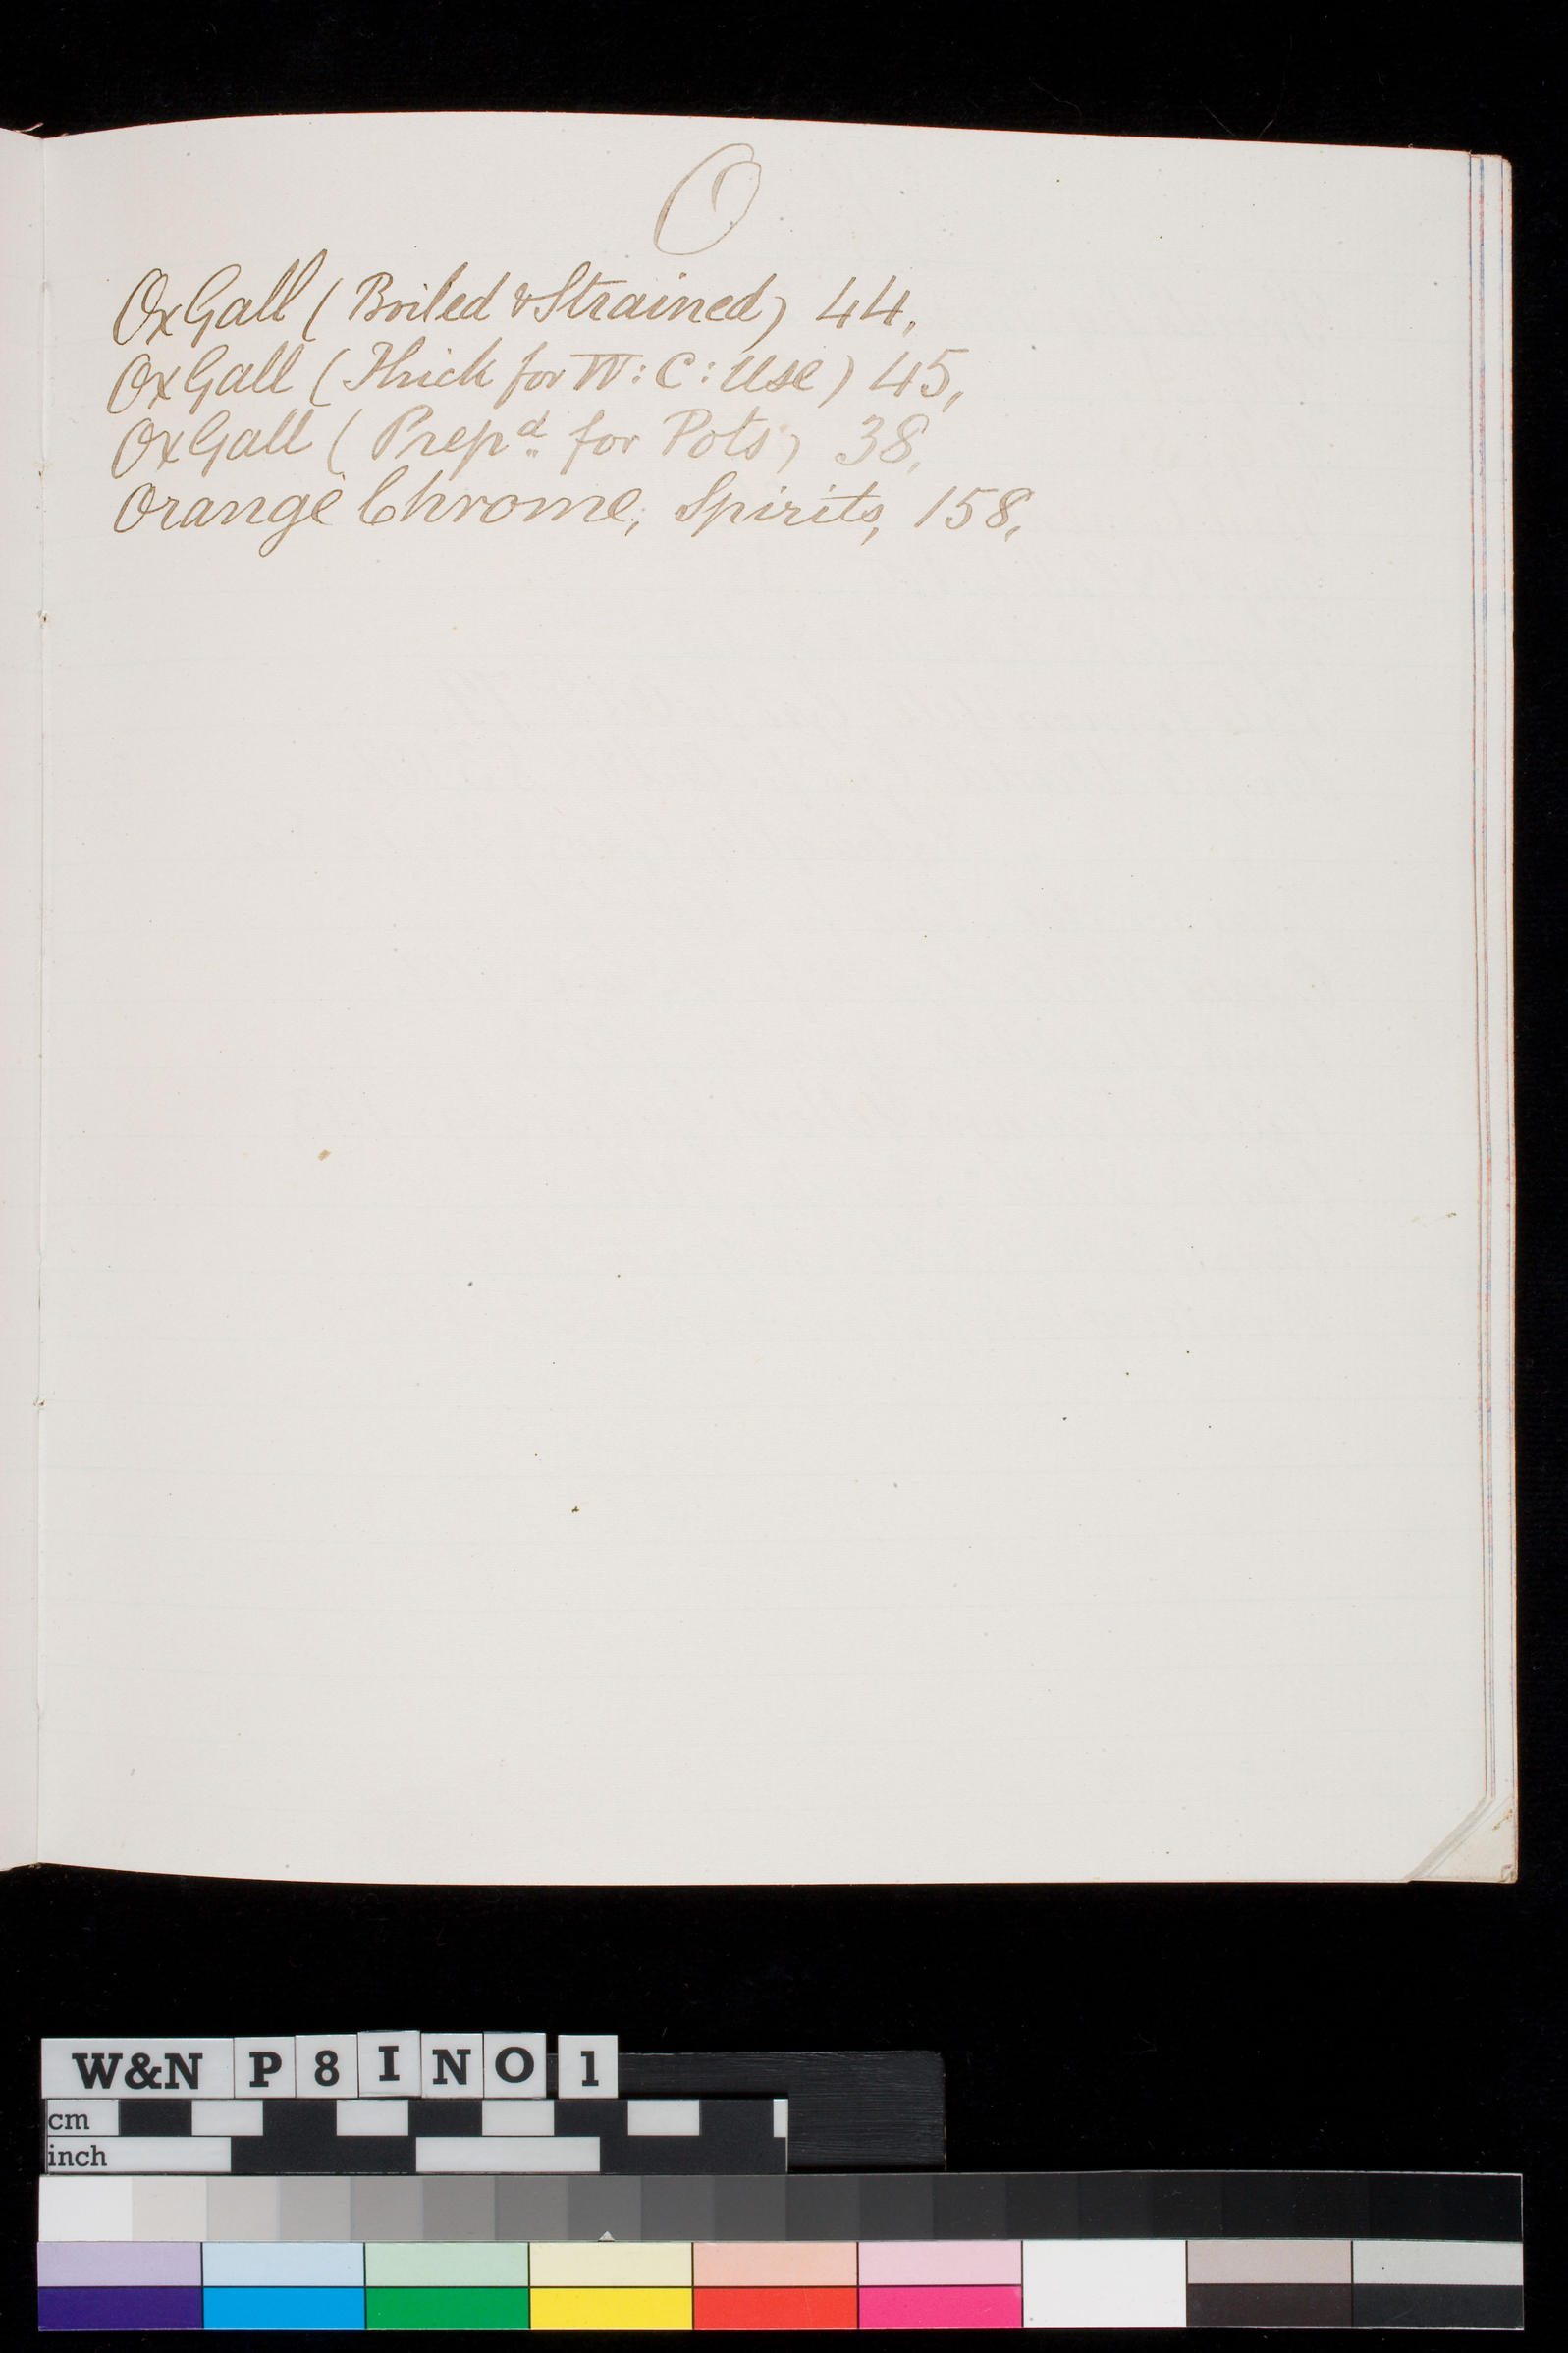 O
OxGall (Boiled & Strained) 44,
OxGall (Thick for W: C: Use) 45,
OxGall (Prepd. for Pots) 38,
Orange Chrome, Spirits, 158,
W&N P 8 I N O 1
cm
inch